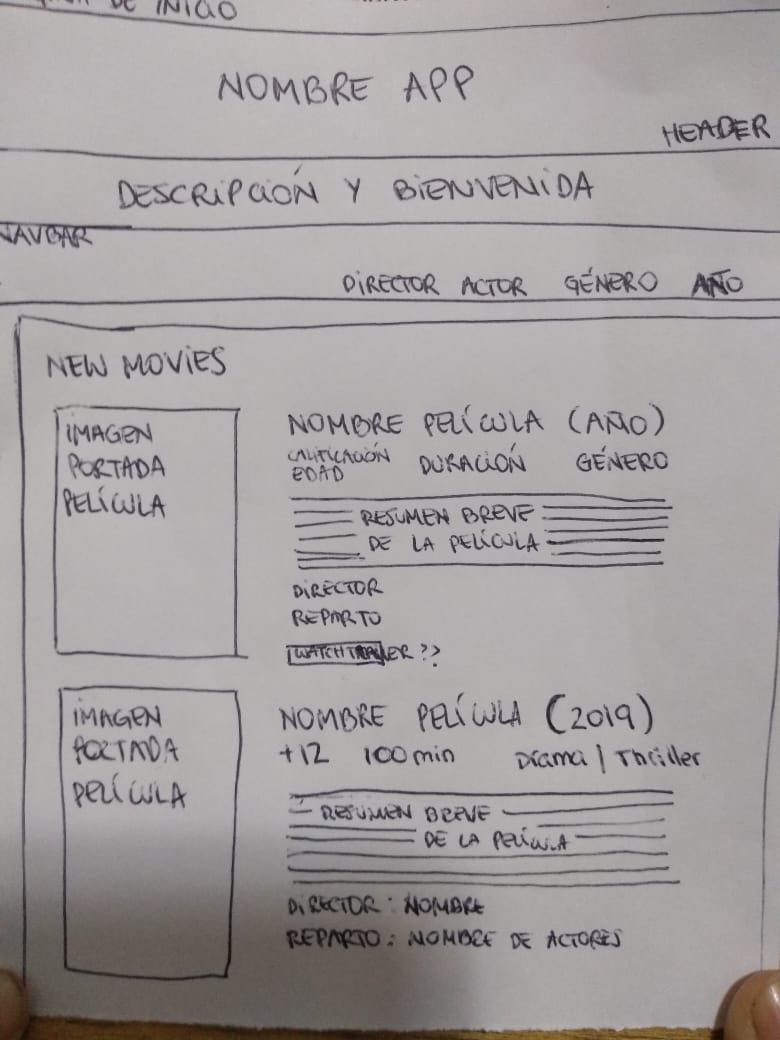 DE INICIO
NOMBRE APP
HEADER
DESCRIPCIÓN Y BIENVENIDA
NAVBAR
DIRECTOR ACTOR GÉNERO AÑO
NEW MOVIES
IMAGEN
PORTADA
PELÍCULA
NOMBRE PELÍCULA (AÑO)
CALIFICACIÓN
EDAD DURACIÓN GÉNERO
RESUMEN BREVE
DE LA PELÍCULA
DIRECTOR
REPARTO
WATCH TRAILER ??
IMAGEN
PORTADA
PELÍCULA
NOMBRE PELÍCULA (2019)
+12 100 min Drama | Thriller
RESUMEN BREVE
DE LA PELÍCULA
DIRECTOR : NOMBRE
REPARTO : NOMBRE DE ACTORES